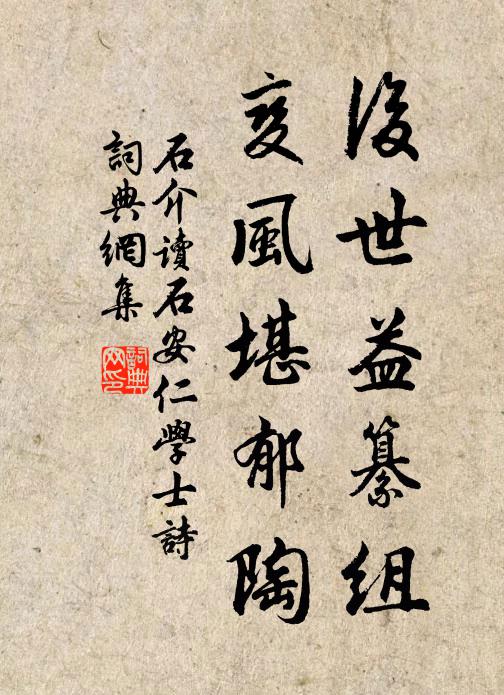 後世益纂組
变風堪郁陶
石介讀石安仁學士詩
詞典網集
詞典網印